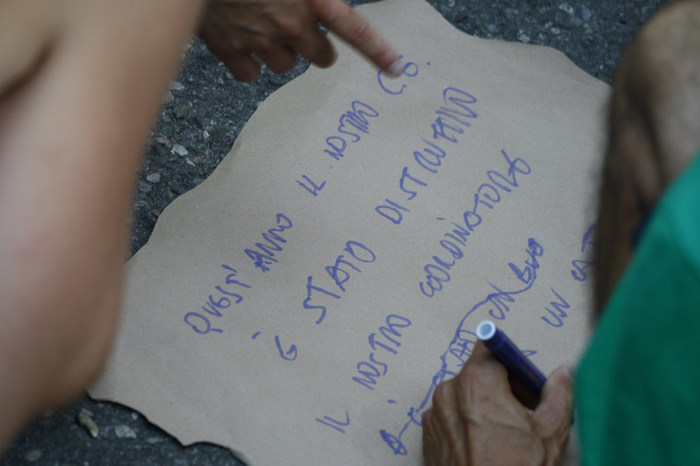 QUEST'ANNO IL NOSTRO C.O.
È STATO DISTRUTTIVO
IL NOSTRO COORDINATORE
UN